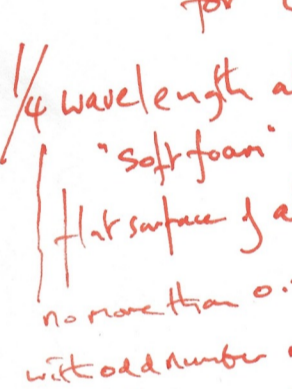 for
1/4 wavelength a
"soft foam"
flat surface of a
no more than 0.
with odd number